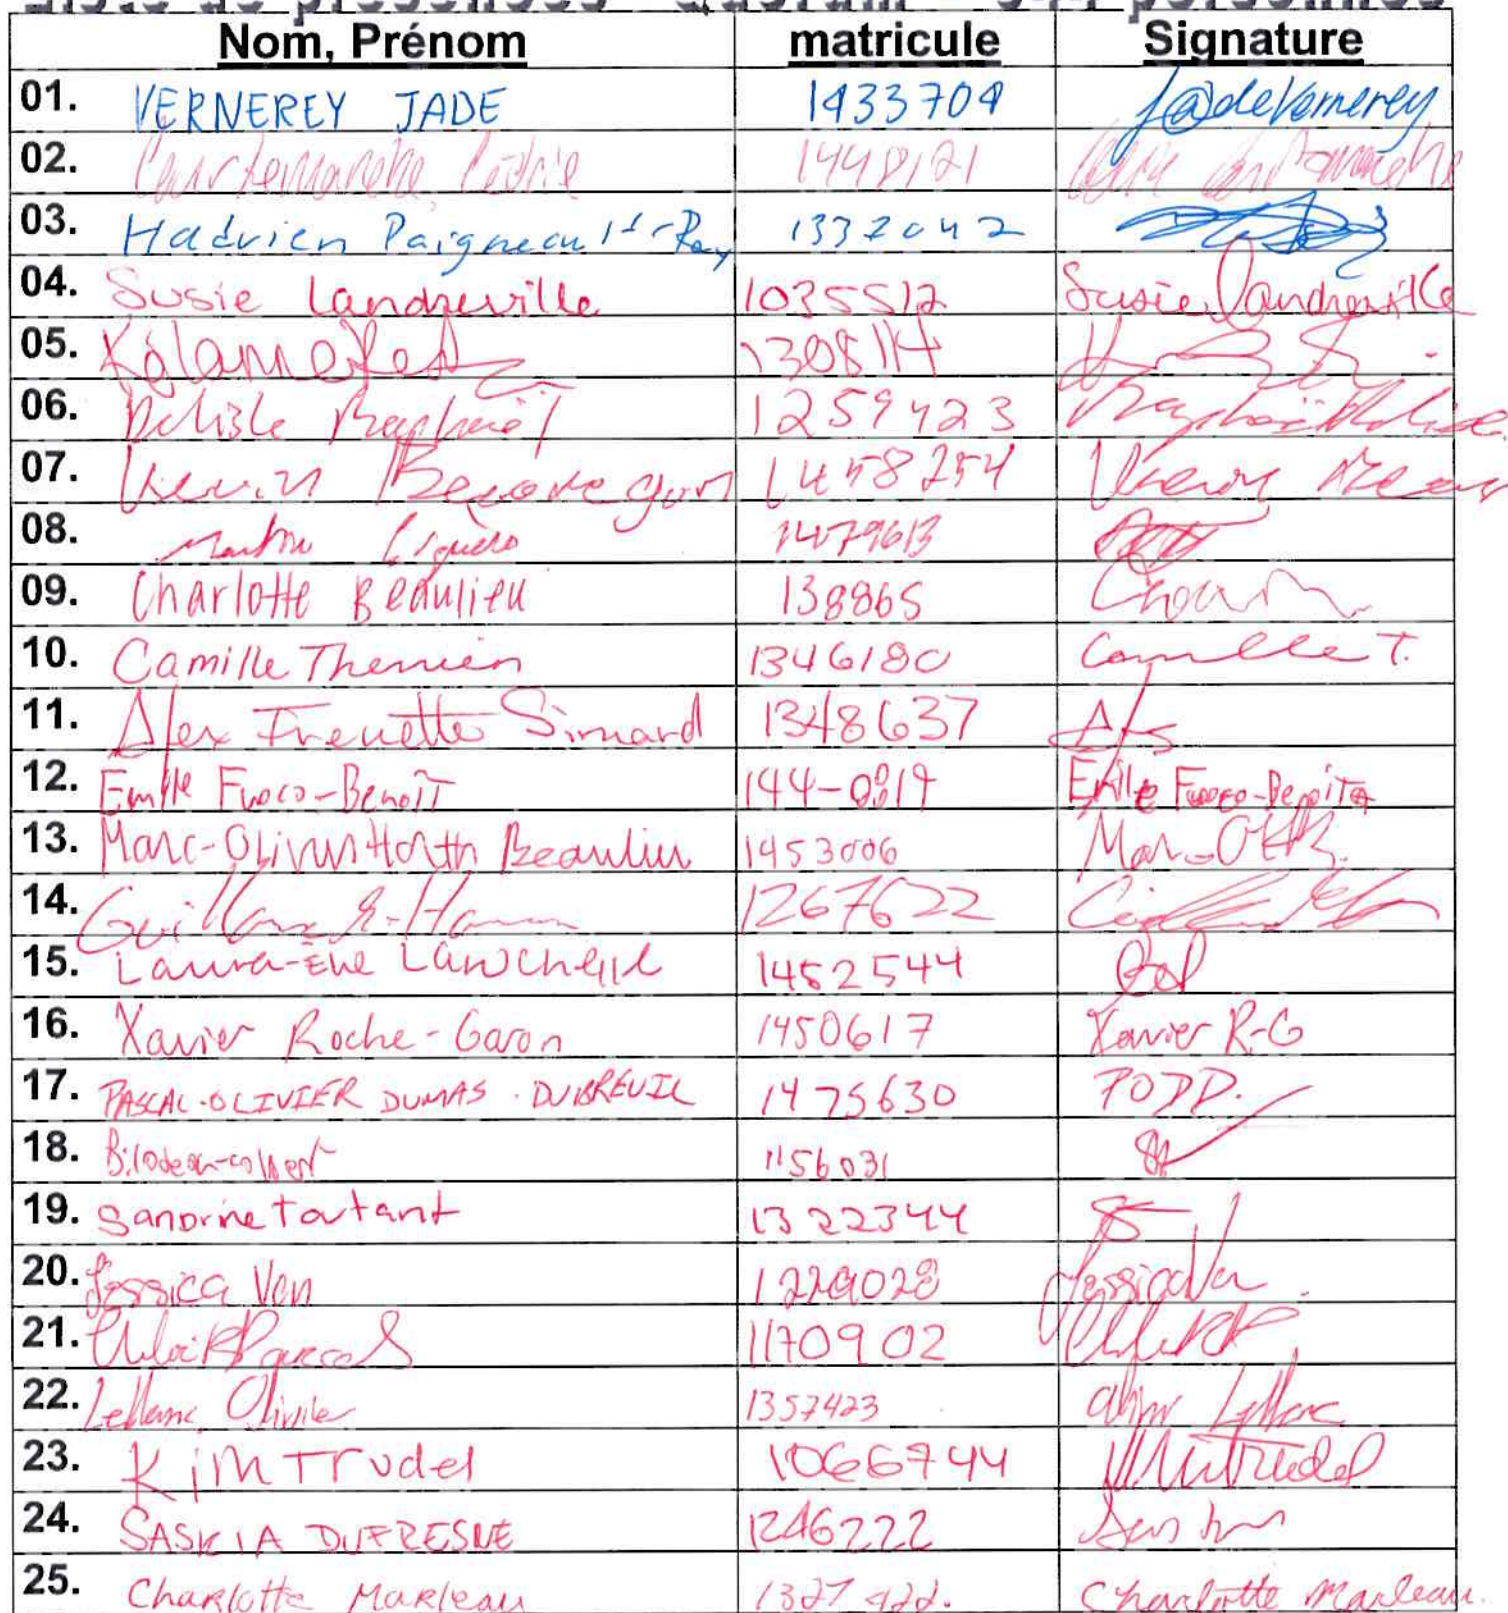 Liste de présences Quorum - 344 personnes
Nom, Prénom matricule Signature
01. VERNEREY JADE 1433704 J@deVernerey
02. Courtemanche, 1448121
03. Hadrien Paigneau 1332042
04. Susie Landreville 1035512 Susie Landreville
05. 1308114
06. Delisle Raphaël 1259423
07. Kevin Beauregard 1458254 Kevin
08. 1479613
09. Charlotte Beaulieu 138865
10. Camille Therrien 1346180 Camille T.
11. Alex Frenette Simard 1348637 AFS
12. Emile Fuoco-Benoît 144-0819 Emile Fuoco-Benoit
13. Marc-Olivier Horth Beaulieu 1453006
14. Guillaume 1267622
15. Laura-Ève Larochelle 1452544
16. Xavier Roche-Garon 1450617 Xavier R-G
17. PASCAL-OLIVIER DUMAS-DUBREUIL 1475630 PODD.
18. Bilodeau-Colbert 1156031
19. Sandrine Toutant 1322344
20. Jessica Van 1229028 Jessica Van
21. 1170902
22. Leblanc, Olivier 1357423 Leblanc
23. Kim Trudel 1066744 Kim Trudel
24. SASKIA DUFRESNE 1246222
25. Charlotte Marleau Charlotte Marleau.